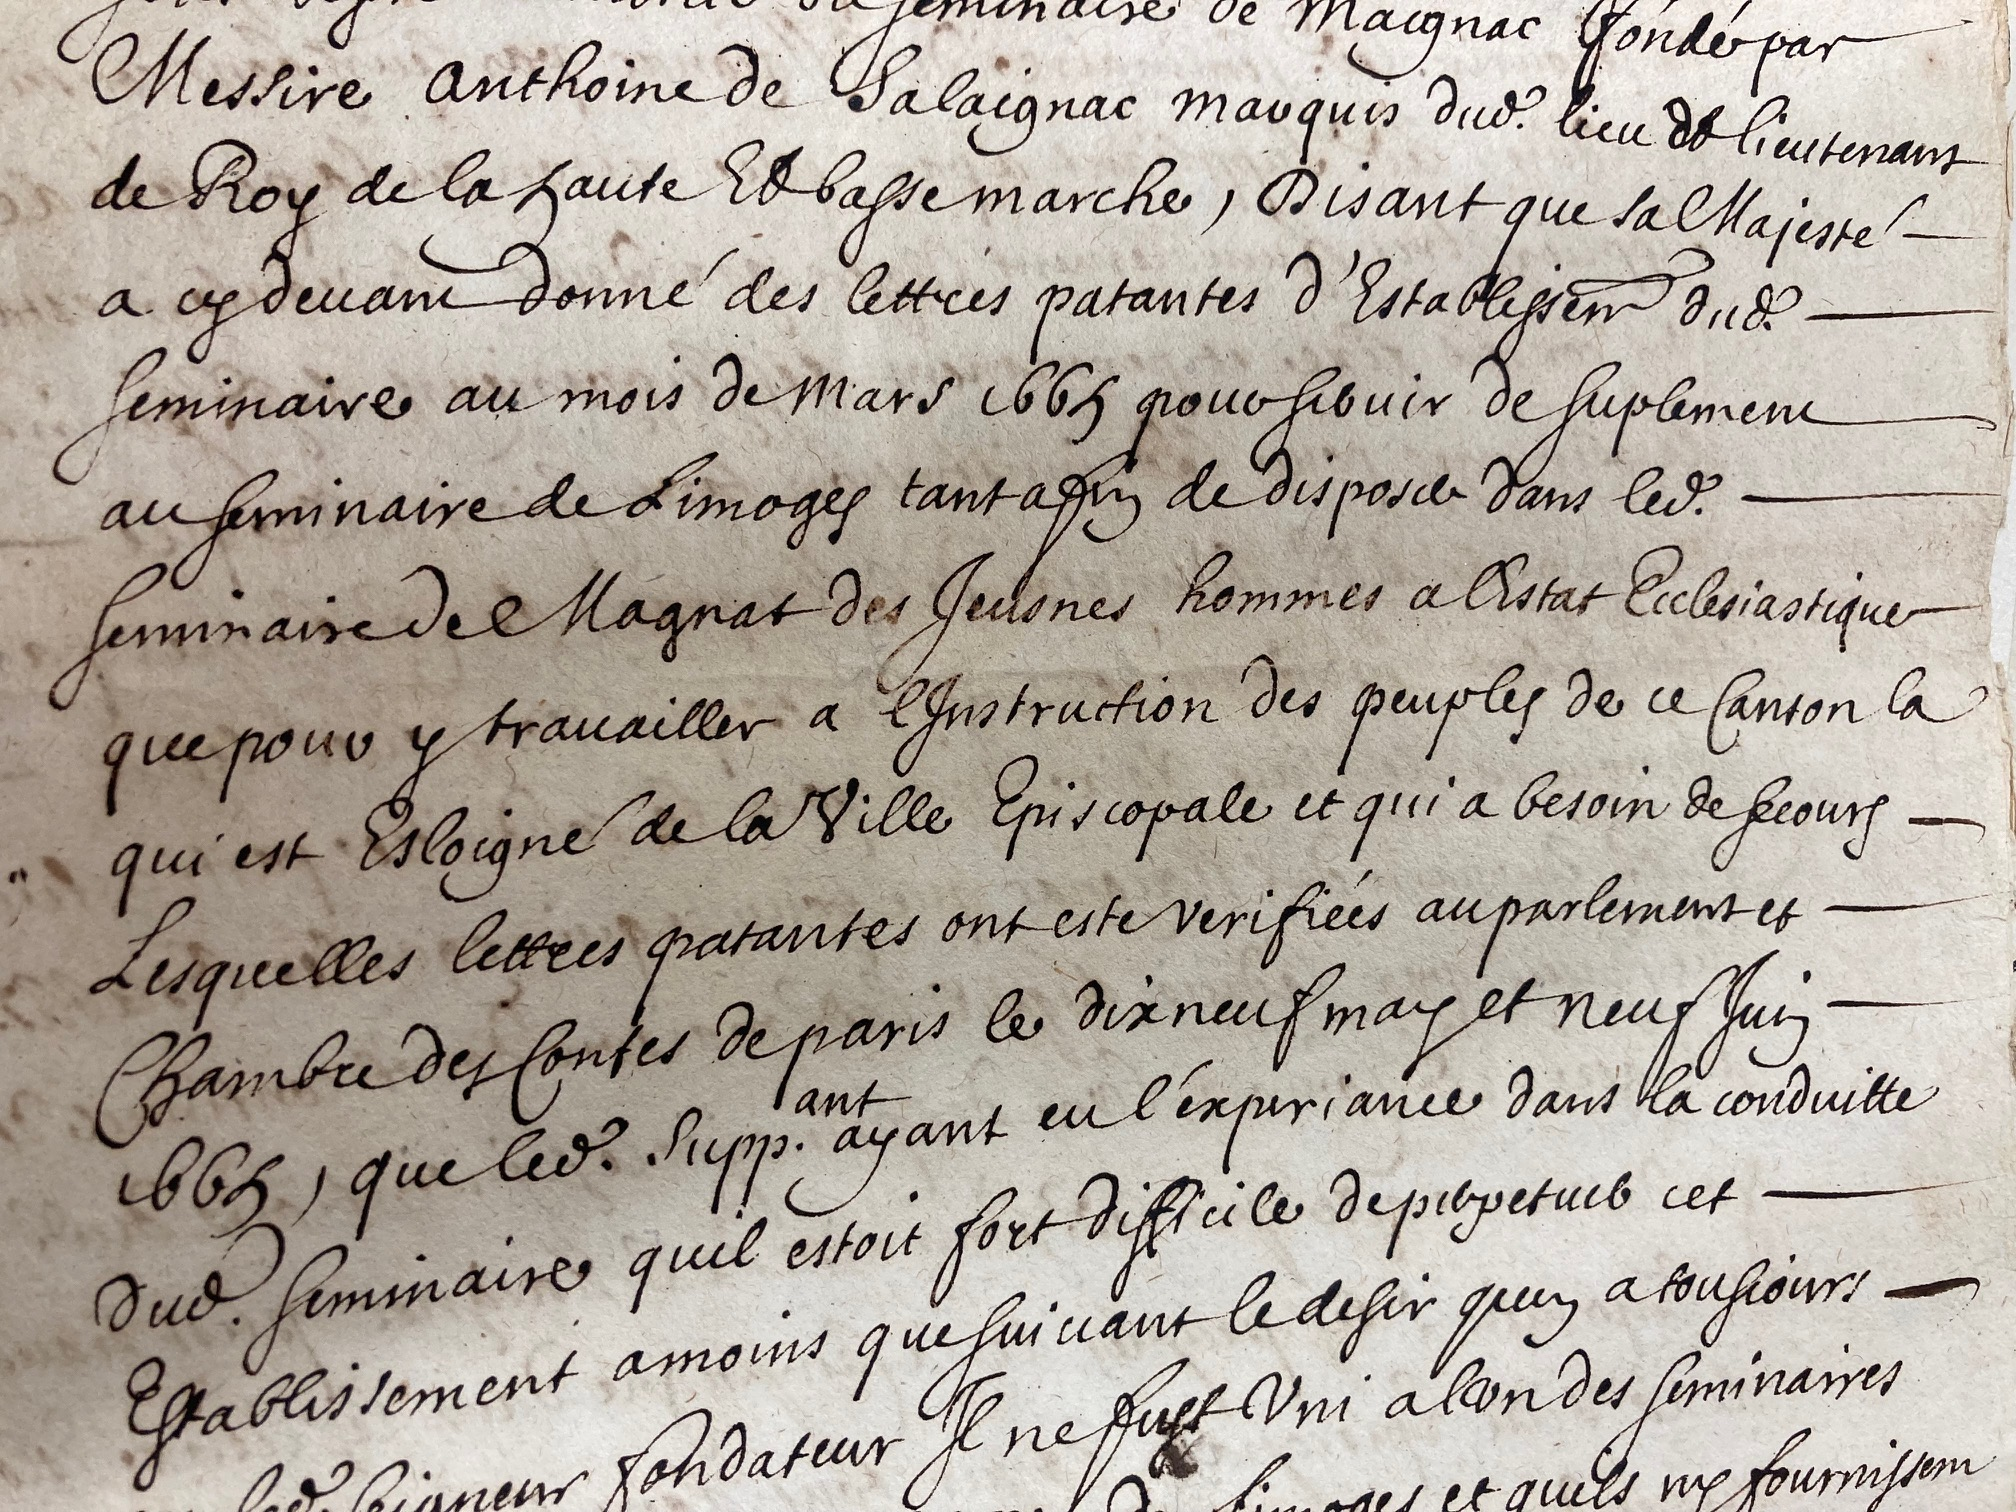 du seminaire de Maignac fondé par
Messire Anthoine de Salaignac marquis dud. lieu et lieutenant
de Roy de la haute Et basse marche, Disant que sa Majesté
a cy devant donné des lettres patantes d'Establissemt dud.
seminaire au mois de Mars 1665 pour servir de suplement
au seminaire de Limoges tant affin de disposer dans led.
seminaire de Magnat des Jeusnes hommes a l'Estat Ecclesiastique
que pour y travailler a l'Instruction des peuples de ce Canton la
qui est Esloigné de la Ville Episcopale et qui a besoin de secours
Lesquelles lettres patantes ont este verifiées au parlement et
Chambre des Contes de paris le dixneuf may et neuf Juin
1665, que led. Supp.ant ayant eu l'experiance dans la conduitte
dud. seminaire quil estoit fort difficile de perpetuer cet
Establissement a moins que suivant le desir quen a tousiours
led. seigneur fondateur Il ne fust Uni a l'un des seminaires
Limoges et quils ny fournissent